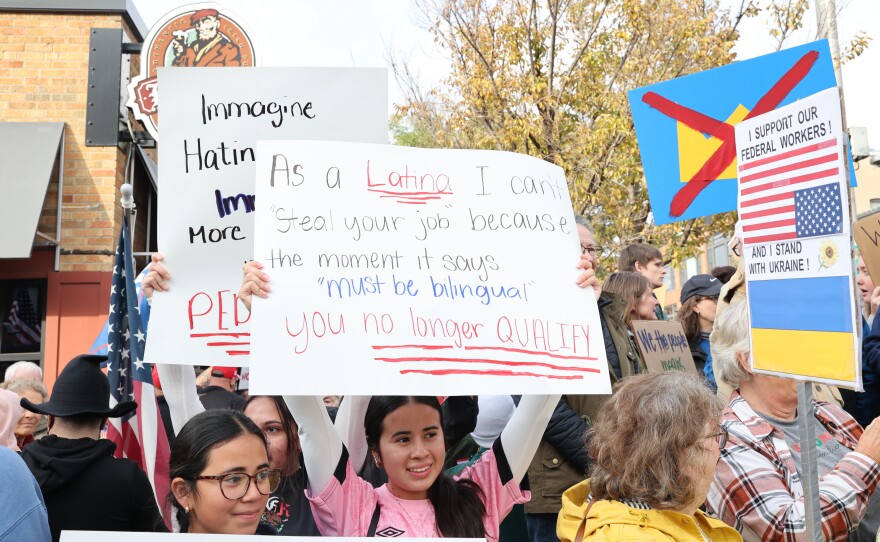 Immagine
Hatin
Im
More
PED
As a Latina I can't
"Steal your job" because
the moment it says
"must be bilingual"
you no longer QUALIFY
I SUPPORT OUR
FEDERAL WORKERS!
AND I STAND
WITH UKRAINE!
We the people
means
W